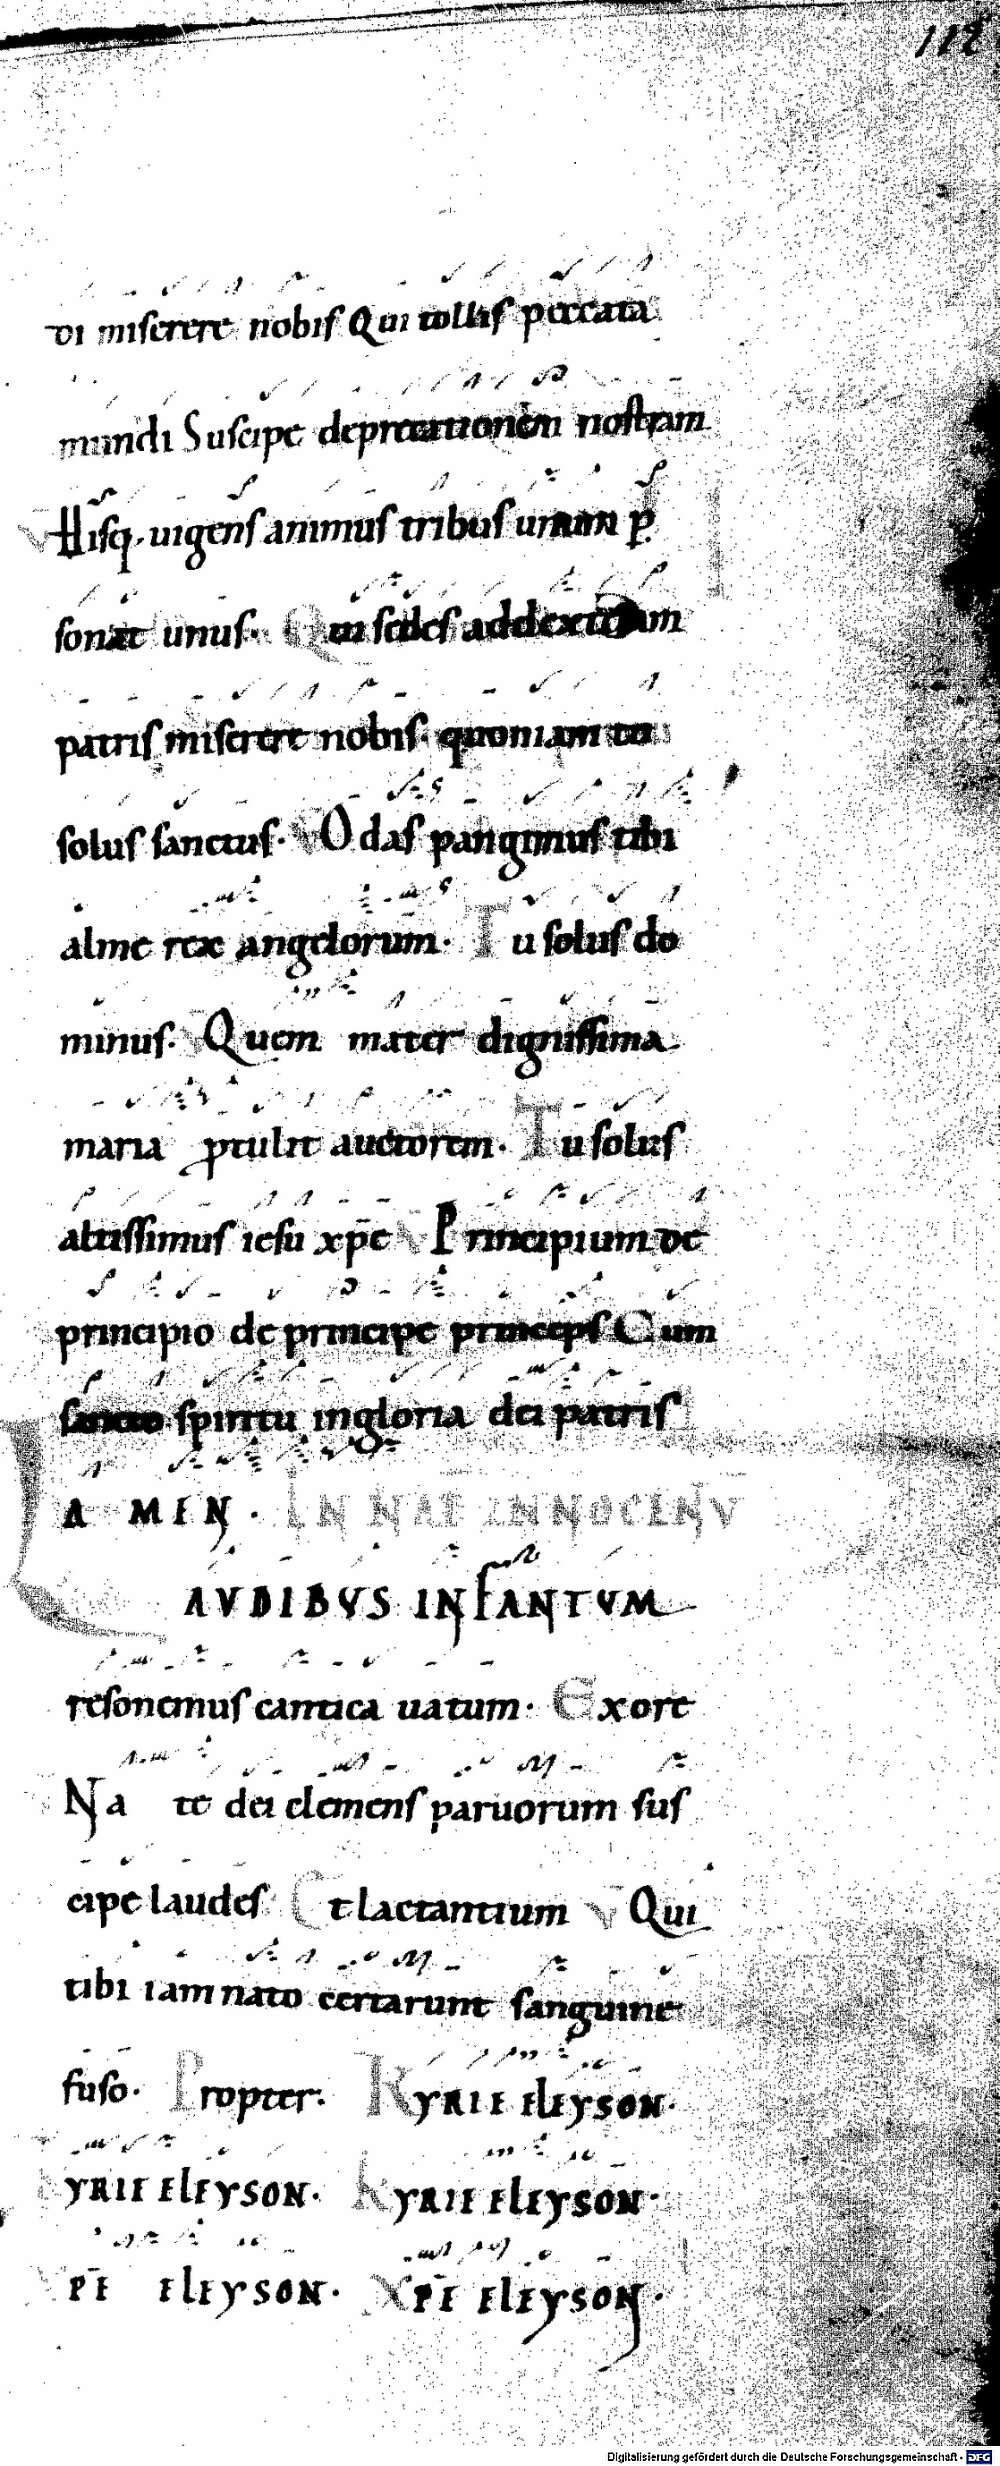 112
di miserere nobis Qui tollis peccata
mundi Suscipe deprecationem nostram
Hisq. uigens animus tribus unum p
sonat unus. Qui sedes addexteram
patris miserere nobis. quoniam tu
solus sanctus. V Odas pangimus tibi
alme rex angelorum. Tu solus do
minus. V Quem mater dignissima
maria ptulit auctorem. Tu solus
altissimus iesu xpe V Principium de
principio de principe princeps Cum
sancto spiritu ingloria dei patris
AMEN. IN NAT INNOCENV
AUDIBUS INFANTUM
resonemus cantica uatum. Exore
Nate dei clemens paruorum sus
cipe laudes Et lactantium V Qui
tibi iam nato certarunt sanguine
fuso. Propter. KYRIE ELEYSON.
YRIE ELEYSON. KYRIE ELEYSON.
PE ELEYSON. XPE ELEYSON.
Digitalisierung gefördert durch die Deutsche Forschungsgemeinschaft - DFG